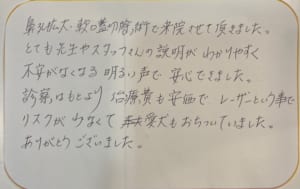 鼻孔拡大・軟口蓋切除術で来院させて頂きました。
とても先生やスタッフさんの説明がわかりやすく
不安がなくなる明るい声で安心できました。
診察はもとより治療費も安価でレーザーという事で
リスクが少なくて愛犬もおちついていました。
ありがとうございました。